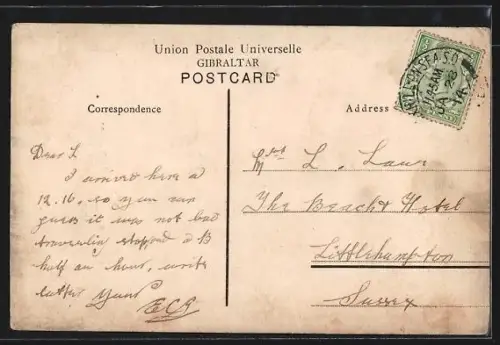 Union Postale Universelle
GIBRALTAR
POSTCARD
Correspondence
Address
Dear L
I arrived here a
12.16. so you can
guess it was not bad
travelling stopped a B
half an hour, write
later Yours
ECR
L. Laur
The Beach Hotel
Littlehampton
Sussex